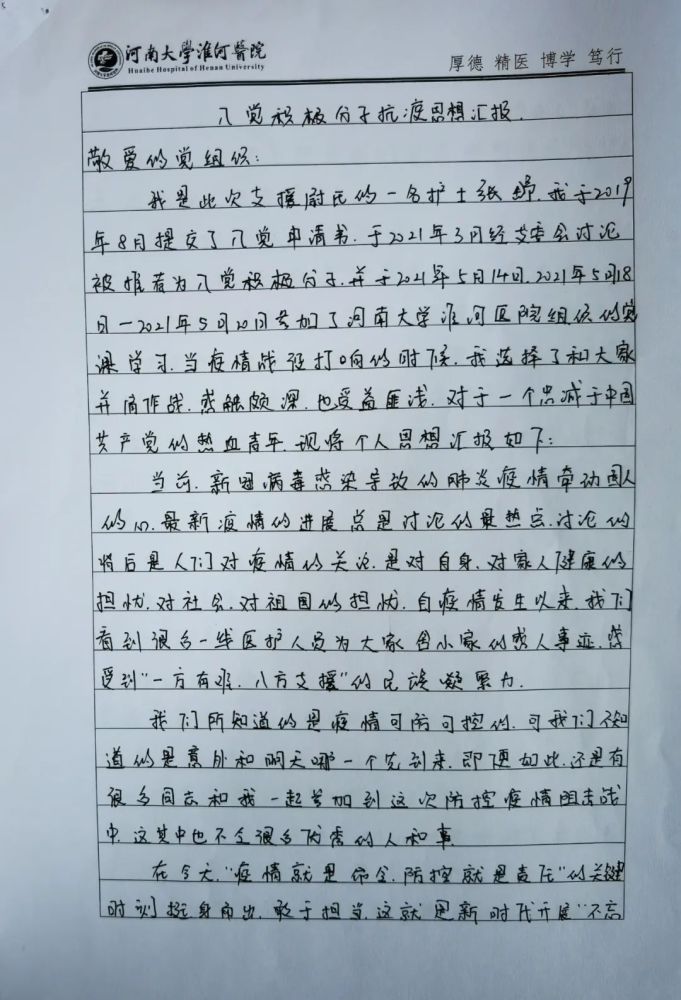 河南大學淮河醫院
Huaihe Hospital of Henan University
厚德 精医 博学 笃行
入党积极分子抗疫思想汇报
敬爱的党组织：
我是此次支援尉氏的一名护士张，我于2019
年8月提交了入党申请书，于2021年3月经支委会讨论
被推荐为入党积极分子，并于2021年5月14日，2021年5月18
日—2021年5月20日参加了河南大学淮河医院组织的党
课学习，当疫情战役打响的时候，我选择了和大家
并肩作战，感触颇深，也受益匪浅，对于一个忠诚于中国
共产党的热血青年，现将个人思想汇报如下：
当前，新冠病毒感染导致的肺炎疫情牵动国人
的心，最新疫情的进展总是讨论的最热点，讨论的
背后是人们对疫情的关注，是对自身、对家人健康的
担忧，对社会、对祖国的担忧，自疫情发生以来，我们
看到很多一线医护人员为大家舍小家的感人事迹，感
受到“一方有难，八方支援”的民族凝聚力.
我们所知道的是疫情可防可控的，可我们不知
道的是意外和明天哪一个先到来，即便如此，还是有
很多同志和我一起参加到这次防控疫情阻击战
中，这其中也不乏很多优秀的人和事.
在今天，“疫情就是命令，防控就是责任”的关键
时刻挺身而出，敢于担当，这就是新时代开展“不忘